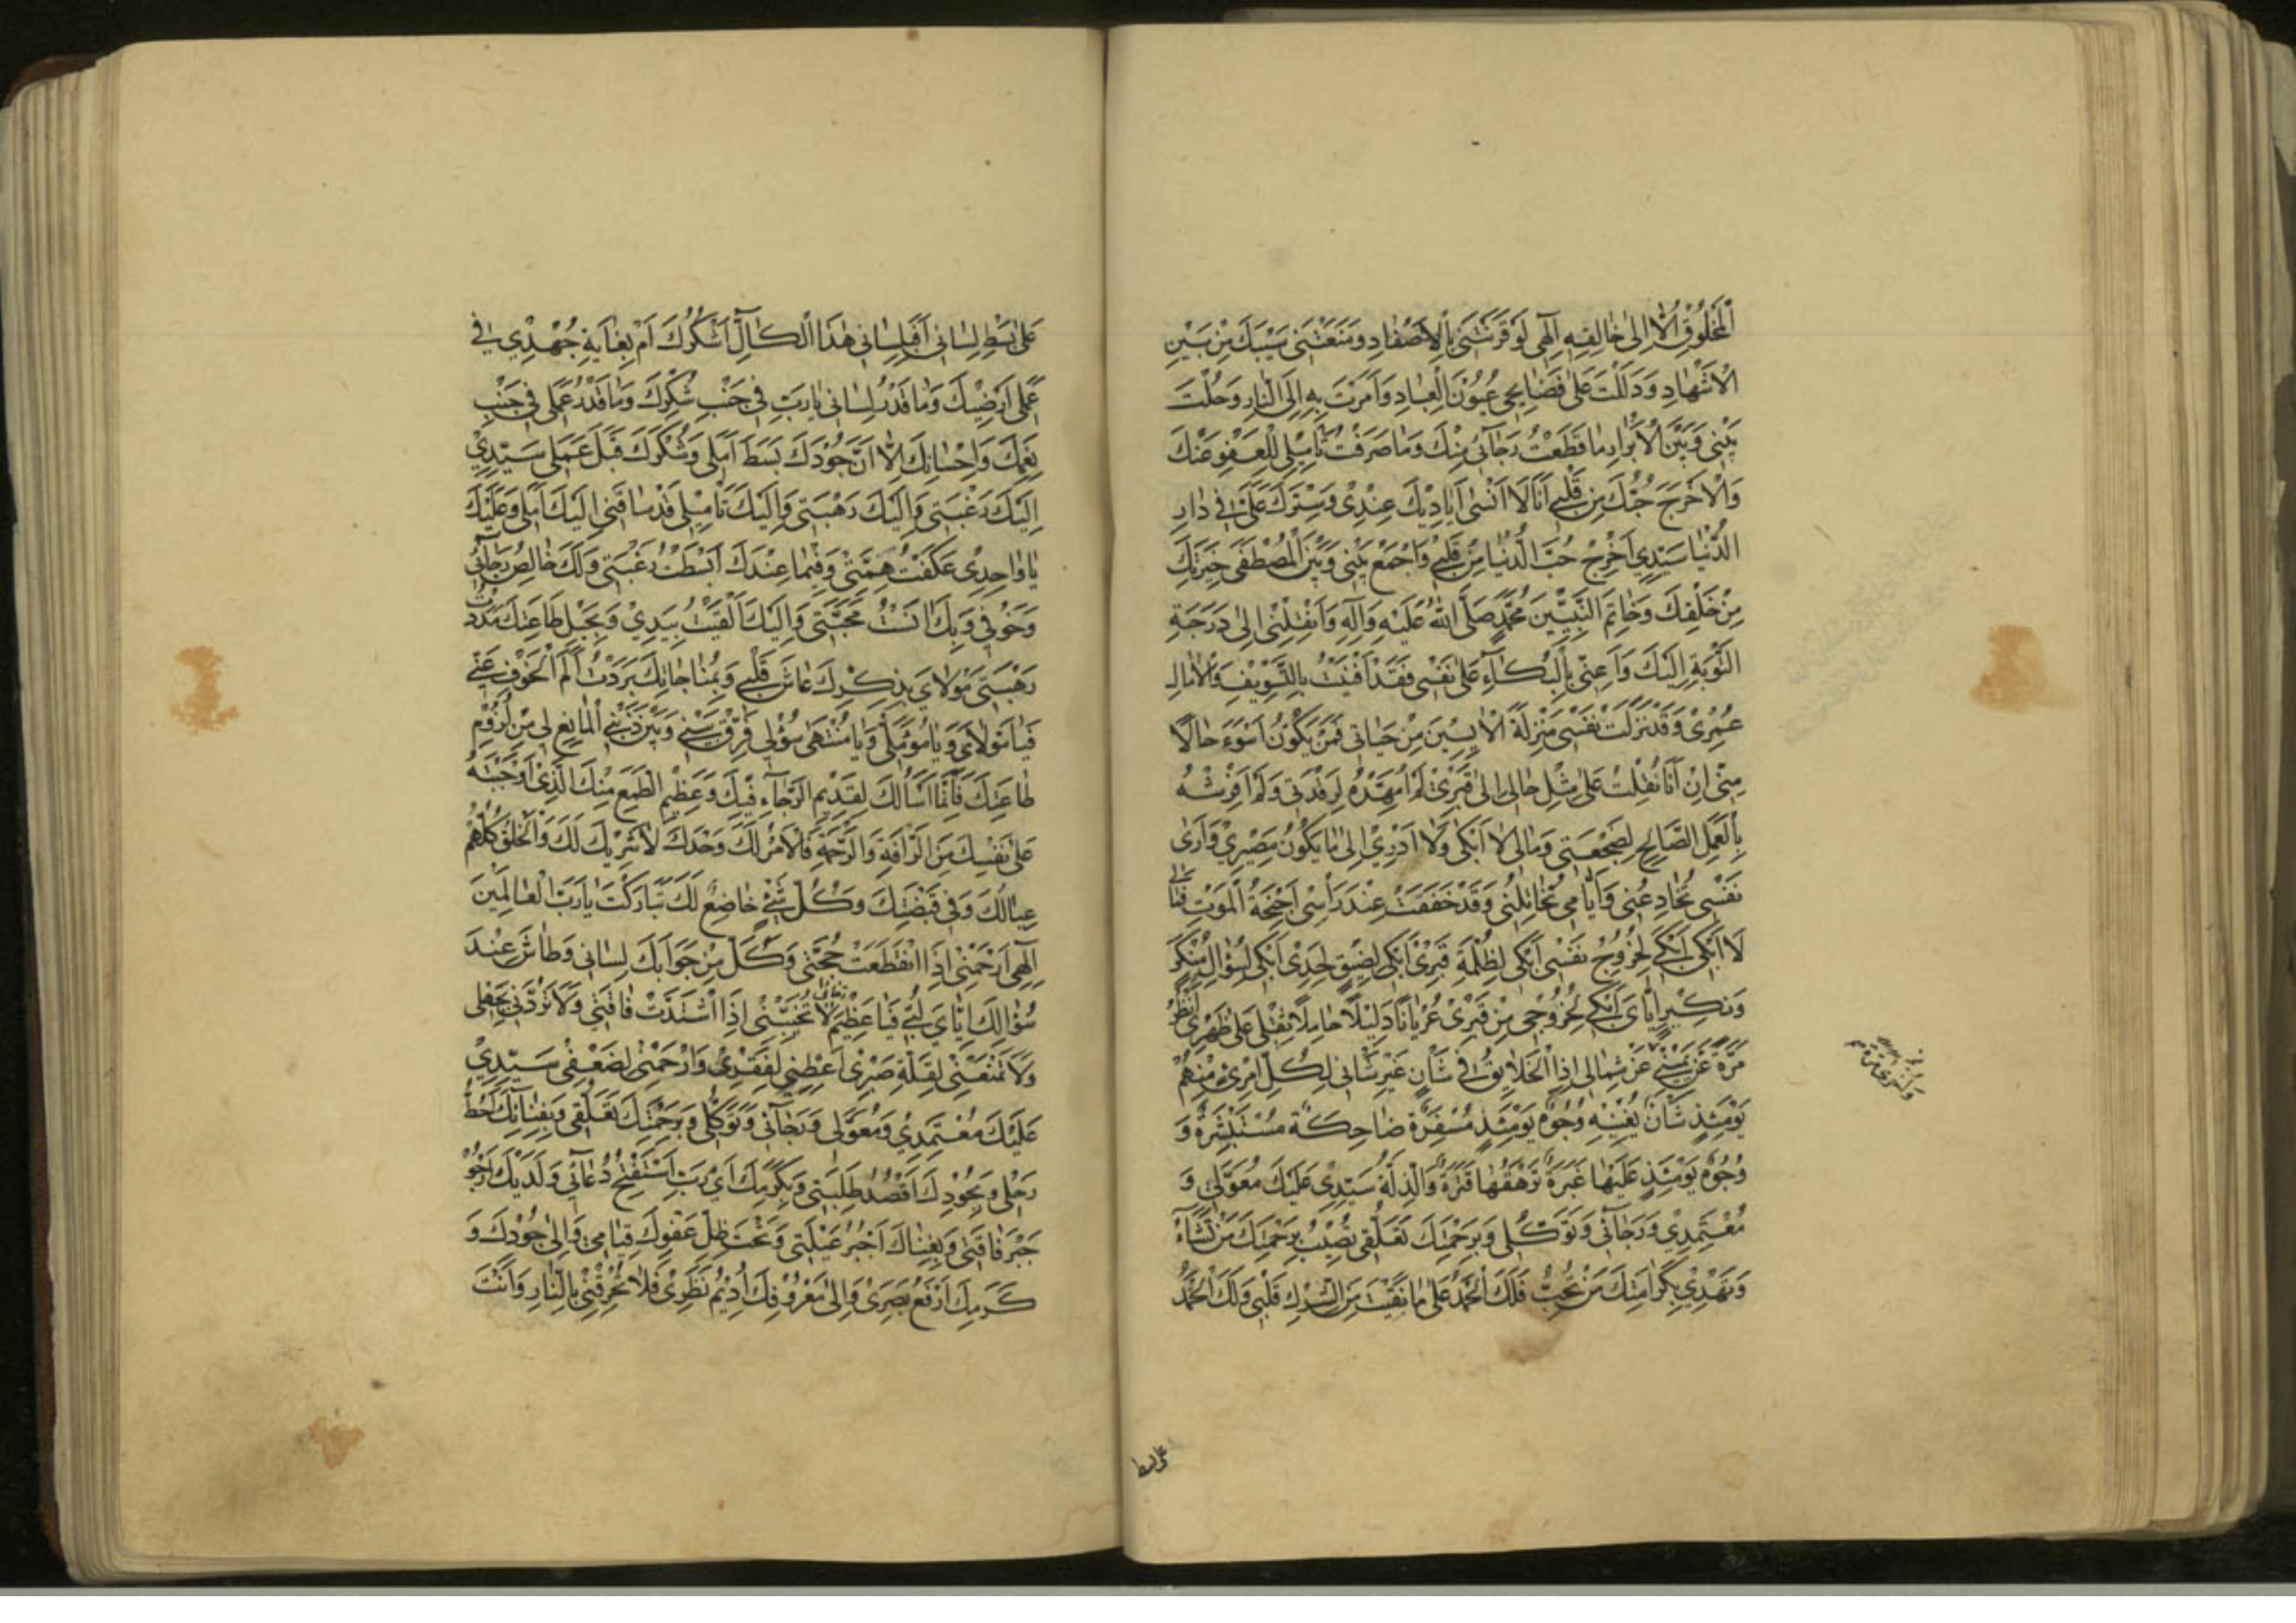 اَلْمَخْلُوقُ اِلَّا اِلىٰ خٰالِقِهِ اِلٰهِى لَوْ قَرَنْتَنِى بِالْاَصْفٰادِ وَمَنَعْتَنِى سَيْبَكَ مِنْ بَيْنِ
الْاَشْهٰادِ وَدَلَلْتَ عَلىٰ فَضٰايِحِى عُيُوْنَ الْعِبٰادِ وَاَمَرْتَ بِهِ اِلَى النّٰارِ وَحُلْتَ
بَيْنِى وَبَيْنَ الْاَبْرٰارِ مٰا قَطَعْتُ رَجٰآئِى مِنْكَ وَمٰا صَرَفْتُ تَاْمِيْلِى لِلْعَفْوِ عَنْكَ
وَلٰا خَرَجَ حُبُّكَ مِنْ قَلْبِى اَنَا لَا اَنْسٰى اَيٰادِيْكَ عِنْدِىْ وَسِتْرَكَ عَلَىَّ فِى دٰارِ
الدُّنْيٰا سَيِّدِى اَخْرِجْ حُبَّ الدُّنْيٰا مِنْ قَلْبِىْ وَاجْمَعْ بَيْنِى وَبَيْنَ الْمُصْطَفٰى خِيَرَتِكَ
مِنْ خَلْقِكَ وَخٰاتِمَ النَّبِيِّيْنَ مُحَمَّدٍ صَلَّى اللهُ عَلَيْهِ وَاٰلِهِ وَاَنْقِلْنِى اِلىٰ دَرَجَةِ
التَّوْبَةِ اِلَيْكَ وَاَعِنِّى بِالْبُكٰآءِ عَلىٰ نَفْسِى فَقَدْ اَفْنَيْتُ بِالتَّسْوِيْفِ وَالْاٰمٰالِ
عُمُرِىْ وَقَدْ نَزَلَتْ نَفْسِى مَنْزِلَةَ الْاٰيِسِيْنَ مِنْ حَيٰاتِى فَمَنْ يَكُوْنُ اَسْوَءَ حٰالًا
مِنِّى اِنْ اَنَا نُقِلْتُ عَلىٰ مِثْلِ حٰالِى اِلىٰ قَبْرِىْ لَمْ اُمَهِّدْهُ لِرَقْدَتِى وَلَمْ اَفْرُشْهُ
بِالْعَمَلِ الصّٰالِحِ لِضَجْعَتِى وَمٰالِى لَا اَبْكِى وَلَا اَدْرِىْ اِلىٰ مٰا يَكُوْنُ مَصِيْرِىْ وَاَرٰى
نَفْسِى تُخٰادِعُنِى وَاَيّٰامِى تُخٰاتِلُنِى وَقَدْ خَفَقَتْ عِنْدَ رَاْسِى اَجْنِحَةُ الْمَوْتِ فَمٰالِى
لَا اَبْكِى اَبْكِى لِخُرُوْجِ نَفْسِى اَبْكِى لِظُلْمَةِ قَبْرِىْ اَبْكِى لِضِيْقِ لَحْدِىْ اَبْكِى لِسُؤٰالِ مُنْكَرٍ
وَنَكِيْرٍ اِيّٰاىَ اَبْكِى لِخُرُوْجِى مِنْ قَبْرِىْ عُرْيٰانًا ذَلِيْلًا حٰامِلًا ثِقْلِى عَلىٰ ظَهْرِىْ اَنْظُرُ
مَرَّةً عَنْ يَمِيْنِى عَنْ شِمٰالِى اِذِ الْخَلٰايِقُ فِى شَاْنٍ غَيْرِ شَاْنِى لِكُلِّ امْرِىءٍ مِنْهُمْ
وَاُخْرٰى
يَوْمَئِذٍ شَاْنٌ يُغْنِيْهِ وُجُوْهٌ يَوْمَئِذٍ مُسْفِرَةٌ ضٰاحِكَةٌ مُسْتَبْشِرَةٌ وَ
وُجُوْهٌ يَوْمَئِذٍ عَلَيْهٰا غَبَرَةٌ تَرْهَقُهٰا قَتَرَةٌ وَالذِّلَّةُ سَيِّدِى عَلَيْكَ مُعَوَّلِى وَ
مُعْتَمَدِىْ وَرَجٰآئِى وَتَوَكُّلِى وَبِرَحْمَتِكَ تَعَلُّقِى تُصِيْبُ بِرَحْمَتِكَ مَنْ تَشٰآءُ
وَتَهْدِىْ بِكَرٰامَتِكَ مَنْ تُحِبُّ فَلَكَ الْحَمْدُ عَلىٰ مٰا نَقَّيْتَ مِنَ الشِّرْكِ قَلْبِى وَلَكَ الْحَمْدُ
على بسط
عَلىٰ بَسْطِ لِسٰانِى اَفَبِلِسٰانِى هٰذَا الْكٰالِّ اَشْكُرُكَ اَمْ بِغٰايَةِ جُهْدِىْ فِى
عَمَلِى اُرْضِيْكَ وَمٰا قَدْرُ لِسٰانِى يٰا رَبِّ فِى جَنْبِ شُكْرِكَ وَمٰا قَدْرُ عَمَلِى فِى جَنْبِ
نِعَمِكَ وَاِحْسٰانِكَ اِلَّا اَنَّ جُوْدَكَ بَسَطَ اَمَلِى وَشُكْرَكَ قَبِلَ عَمَلِى سَيِّدِىْ
اِلَيْكَ رَغْبَتِى وَاِلَيْكَ رَهْبَتِى وَاِلَيْكَ تَاْمِيْلِى قَدْ سٰاقَنِى اِلَيْكَ اَمَلِى وَعَلَيْكَ
يٰا وٰاحِدِىْ عَكَفَتْ هِمَّتِىْ وَفِيْمٰا عِنْدَكَ انْبَسَطَتْ رَغْبَتِى وَلَكَ خٰالِصُ رَجٰآئِى
وَخَوْفِى وَبِكَ اَنِسَتْ مَحَبَّتِى وَاِلَيْكَ اَلْقَيْتُ بِيَدِىْ وَبِحَبْلِ طٰاعَتِكَ مَدَدْتُ
رَهْبَتِى مَوْلٰاىَ بِذِكْرِكَ عٰاشَ قَلْبِى وَبِمُنٰاجٰاتِكَ بَرَّدْتُ اَلَمَ الْخَوْفِ عَنِّى
فَيٰا مَوْلٰاىَ وَيٰا مُؤَمَّلِى وَيٰا مُنْتَهٰى سُؤْلِى فَرِّقْ بَيْنِى وَبَيْنَ ذَنْبِىَ الْمٰانِعِ لِى مِنْ لُزُوْمِ
طٰاعَتِكَ فَاِنَّمٰا اَسْاَلُكَ لِقَدِيْمِ الرَّجٰآءِ فِيْكَ وَعَظِيْمِ الطَّمَعِ مِنْكَ الَّذِىْ اَوْجَبْتَهُ
عَلىٰ نَفْسِكَ مِنَ الرَّاْفَةِ وَالرَّحْمَةِ فَالْاَمْرُ لَكَ وَحْدَكَ لَا شَرِيْكَ لَكَ وَالْخَلْقُ كُلُّهُمْ
عِيٰالُكَ وَفِى قَبْضَتِكَ وَكُلُّ شَىْءٍ خٰاضِعٌ لَكَ تَبٰارَكْتَ يٰا رَبَّ الْعٰالَمِيْنَ
اِلٰهِى ارْحَمْنِى اِذَا انْقَطَعَتْ حُجَّتِى وَكَلَّ مِنْ جَوٰابِكَ لِسٰانِى وَطٰاشَ عِنْدَ
سُؤٰالِكَ اِيّٰاىَ لُبِّى فَيٰا عَظِيْمَ رَجٰائِى لَا تُخَيِّبْنِى اِذَا اشْتَدَّتْ فٰاقَتِى وَلَا تَرُدَّنِى بِجَهْلِى
وَلَا تَمْنَعْنِى لِقِلَّةِ صَبْرِى اَعْطِنِى لِفَقْرِىْ وَارْحَمْنِى لِضَعْفِى سَيِّدِىْ
عَلَيْكَ مُعْتَمَدِىْ وَمُعَوَّلِى وَرَجٰآئِى وَتَوَكُّلِى وَبِرَحْمَتِكَ تَعَلُّقِى وَبِفِنٰآئِكَ اَحُطُّ
رَحْلِى وَبِجُوْدِكَ اَقْصُدُ طَلِبَتِى وَبِكَرَمِكَ اَىْ رَبِّ اَسْتَفْتِحُ دُعٰآئِى وَلَدَيْكَ اَرْجُوْ
جَبْرَ فٰاقَتِى وَبِغِنٰاكَ اَجْبُرُ عَيْلَتِى وَتَحْتَ ظِلِّ عَفْوِكَ قِيٰامِى وَاِلىٰ جُوْدِكَ وَ
كَرَمِكَ اَرْفَعُ بَصَرِىْ وَاِلىٰ مَعْرُوْفِكَ اُدِيْمُ نَظَرِىْ فَلَا تُحْرِقْنِى بِالنّٰارِ وَاَنْتَ